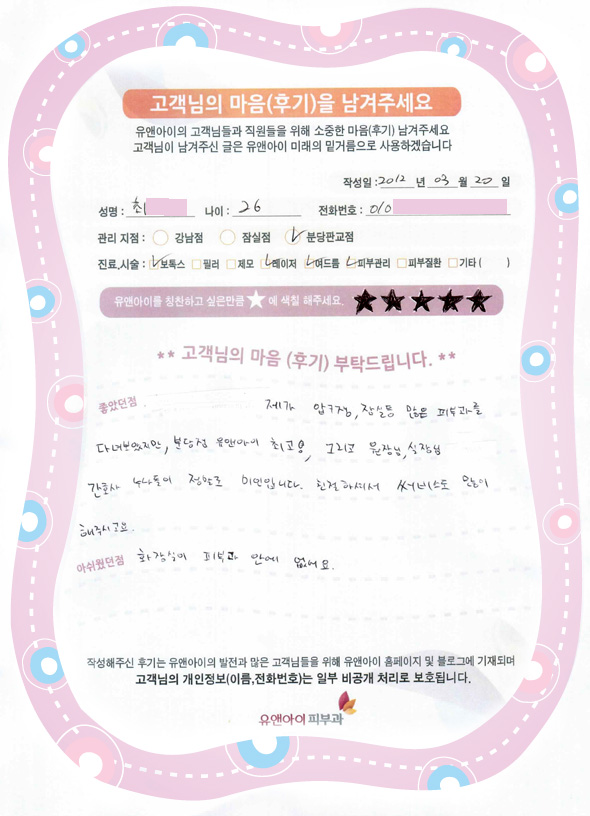 고객님의 마음(후기)을 남겨주세요
유앤아이의 고객님들과 직원들을 위해 소중한 마음(후기) 남겨주세요
고객님이 남겨주신 글은 유앤아이 미래의 밑거름으로 사용하겠습니다
작성일 : 2012 년 03 월 20 일
성명 : 최 나이 : 26 전화번호 : 010
관리 지점 : 강남점 잠실점 분당판교점
진료,시술 : 보톡스 필러 제모 레이저 여드름 피부관리 피부질환 기타 ( )
유앤아이를 칭찬하고 싶은만큼 ★ 에 색칠 해주세요. ★★★★★
** 고객님의 마음 (후기) 부탁드립니다. **
좋았던점 제가 압구정, 잠실등 많은 피부과를
다녀보았지만, 분당점 유앤아이 최고용, 그리고 원장님, 실장님
간호사 누나들이 정말로 미인입니다. 친절하셔서 써비스도 많이
해주시고요.
아쉬웠던점 화장실이 피부과 안에 없어요.
작성해주신 후기는 유앤아이의 발전과 많은 고객님들을 위해 유앤아이 홈페이지 및 블로그에 기재되며
고객님의 개인정보(이름,전화번호)는 일부 비공개 처리로 보호됩니다.
유앤아이피부과